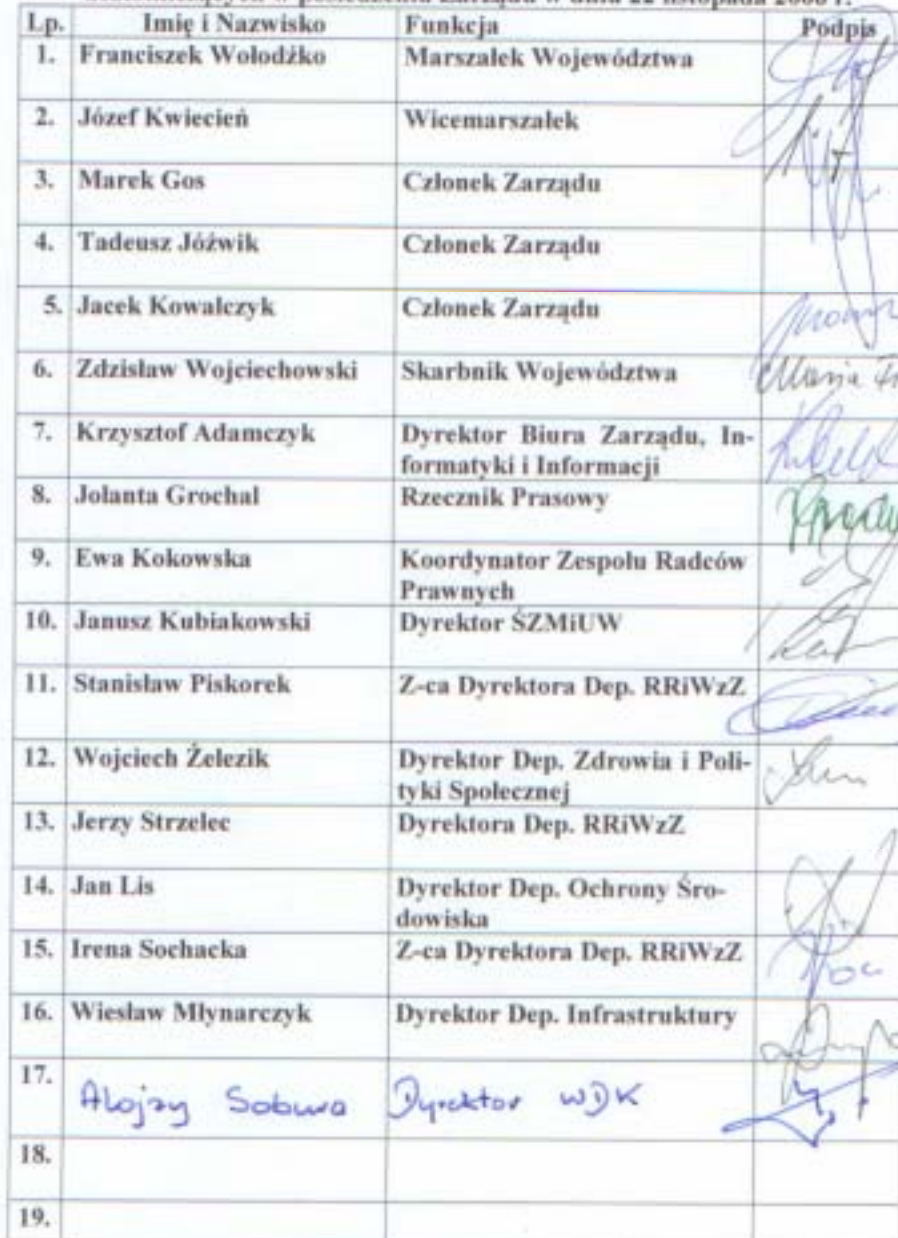 w posiedzeniu Zarządu w dniu 22 listopada
Lp. Imię i Nazwisko Funkcja Podpis
1. Franciszek Wołodźko Marszałek Województwa
2. Józef Kwiecień Wicemarszałek
3. Marek Gos Członek Zarządu
4. Tadeusz Jóźwik Członek Zarządu
5. Jacek Kowalczyk Członek Zarządu
6. Zdzisław Wojciechowski Skarbnik Województwa
Maria
7. Krzysztof Adamczyk Dyrektor Biura Zarządu, In-
formatyki i Informacji
8. Jolanta Grochal Rzecznik Prasowy
9. Ewa Kokowska Koordynator Zespołu Radców
Prawnych
10. Janusz Kubiakowski Dyrektor ŚZMiUW
11. Stanisław Piskorek Z-ca Dyrektora Dep. RRiWzZ
12. Wojciech Żelezik Dyrektor Dep. Zdrowia i Poli-
tyki Społecznej
13. Jerzy Strzelec Dyrektora Dep. RRiWzZ
14. Jan Lis Dyrektor Dep. Ochrony Śro-
dowiska
15. Irena Sochacka Z-ca Dyrektora Dep. RRiWzZ
16. Wiesław Młynarczyk Dyrektor Dep. Infrastruktury
17. Alojzy Sobura Dyrektor WDK
18.
19.